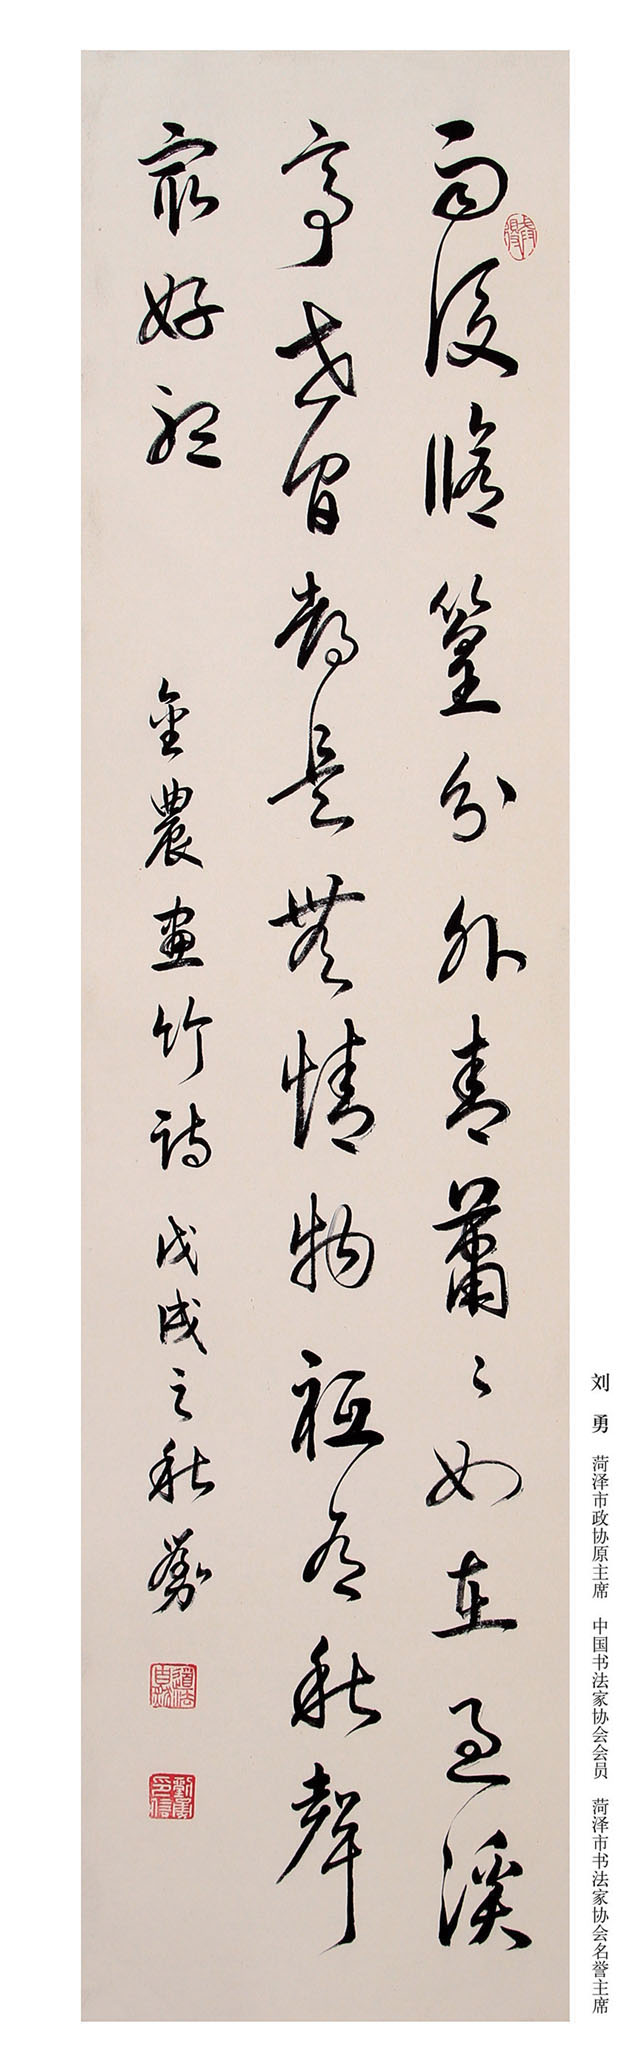 雨後脩篁分外青蕭〻如在過溪
亭世間都是無情物祗有秋聲
最好聽
金農畫竹詩 戊戌之秋 勇
道法自然
劉勇印信
刘 勇 菏泽市政协原主席 中国书法家协会会员 菏泽市书法家协会名誉主席